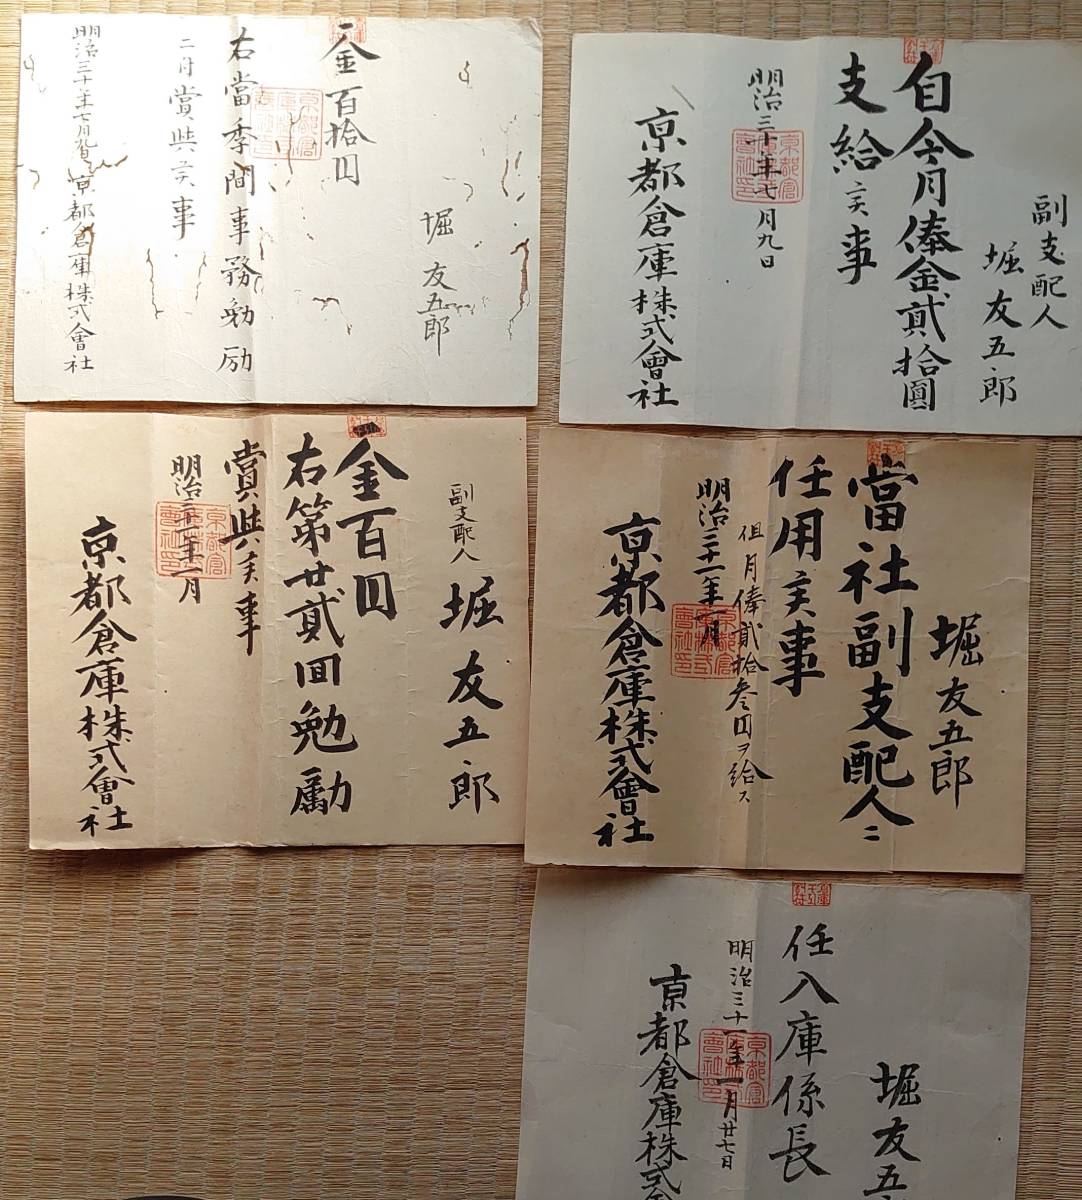 副支配人
堀友五郎
自今月俸金貳拾圓
支給候事
明治三十年七月九日
京都倉庫株式會社
堀友五郎
一金百拾円
右當季間事務勉励
ニ付賞與候事
明治三十年七月九日
京都倉庫株式會社
堀友五郎
當社副支配人ニ
任用候事
但月俸貳拾叁円ヲ給ス
明治三十一年一月
京都倉庫株式會社
副支配人
堀友五郎
一金百円
右第廿貳回勉勵
賞與候事
明治三十一年一月
京都倉庫株式會社
堀友五
任入庫係長
明治三十一年一月廿七日
京都倉庫株式